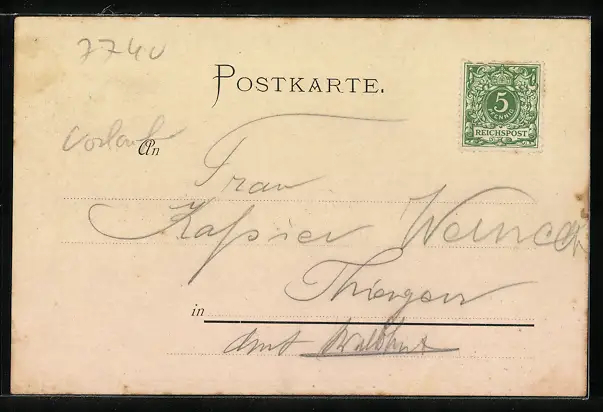 7740
POSTKARTE.
5
PFENNIG
REICHSPOST
An
Frau
Kassier
Thiengen
in
Amt Waldshut